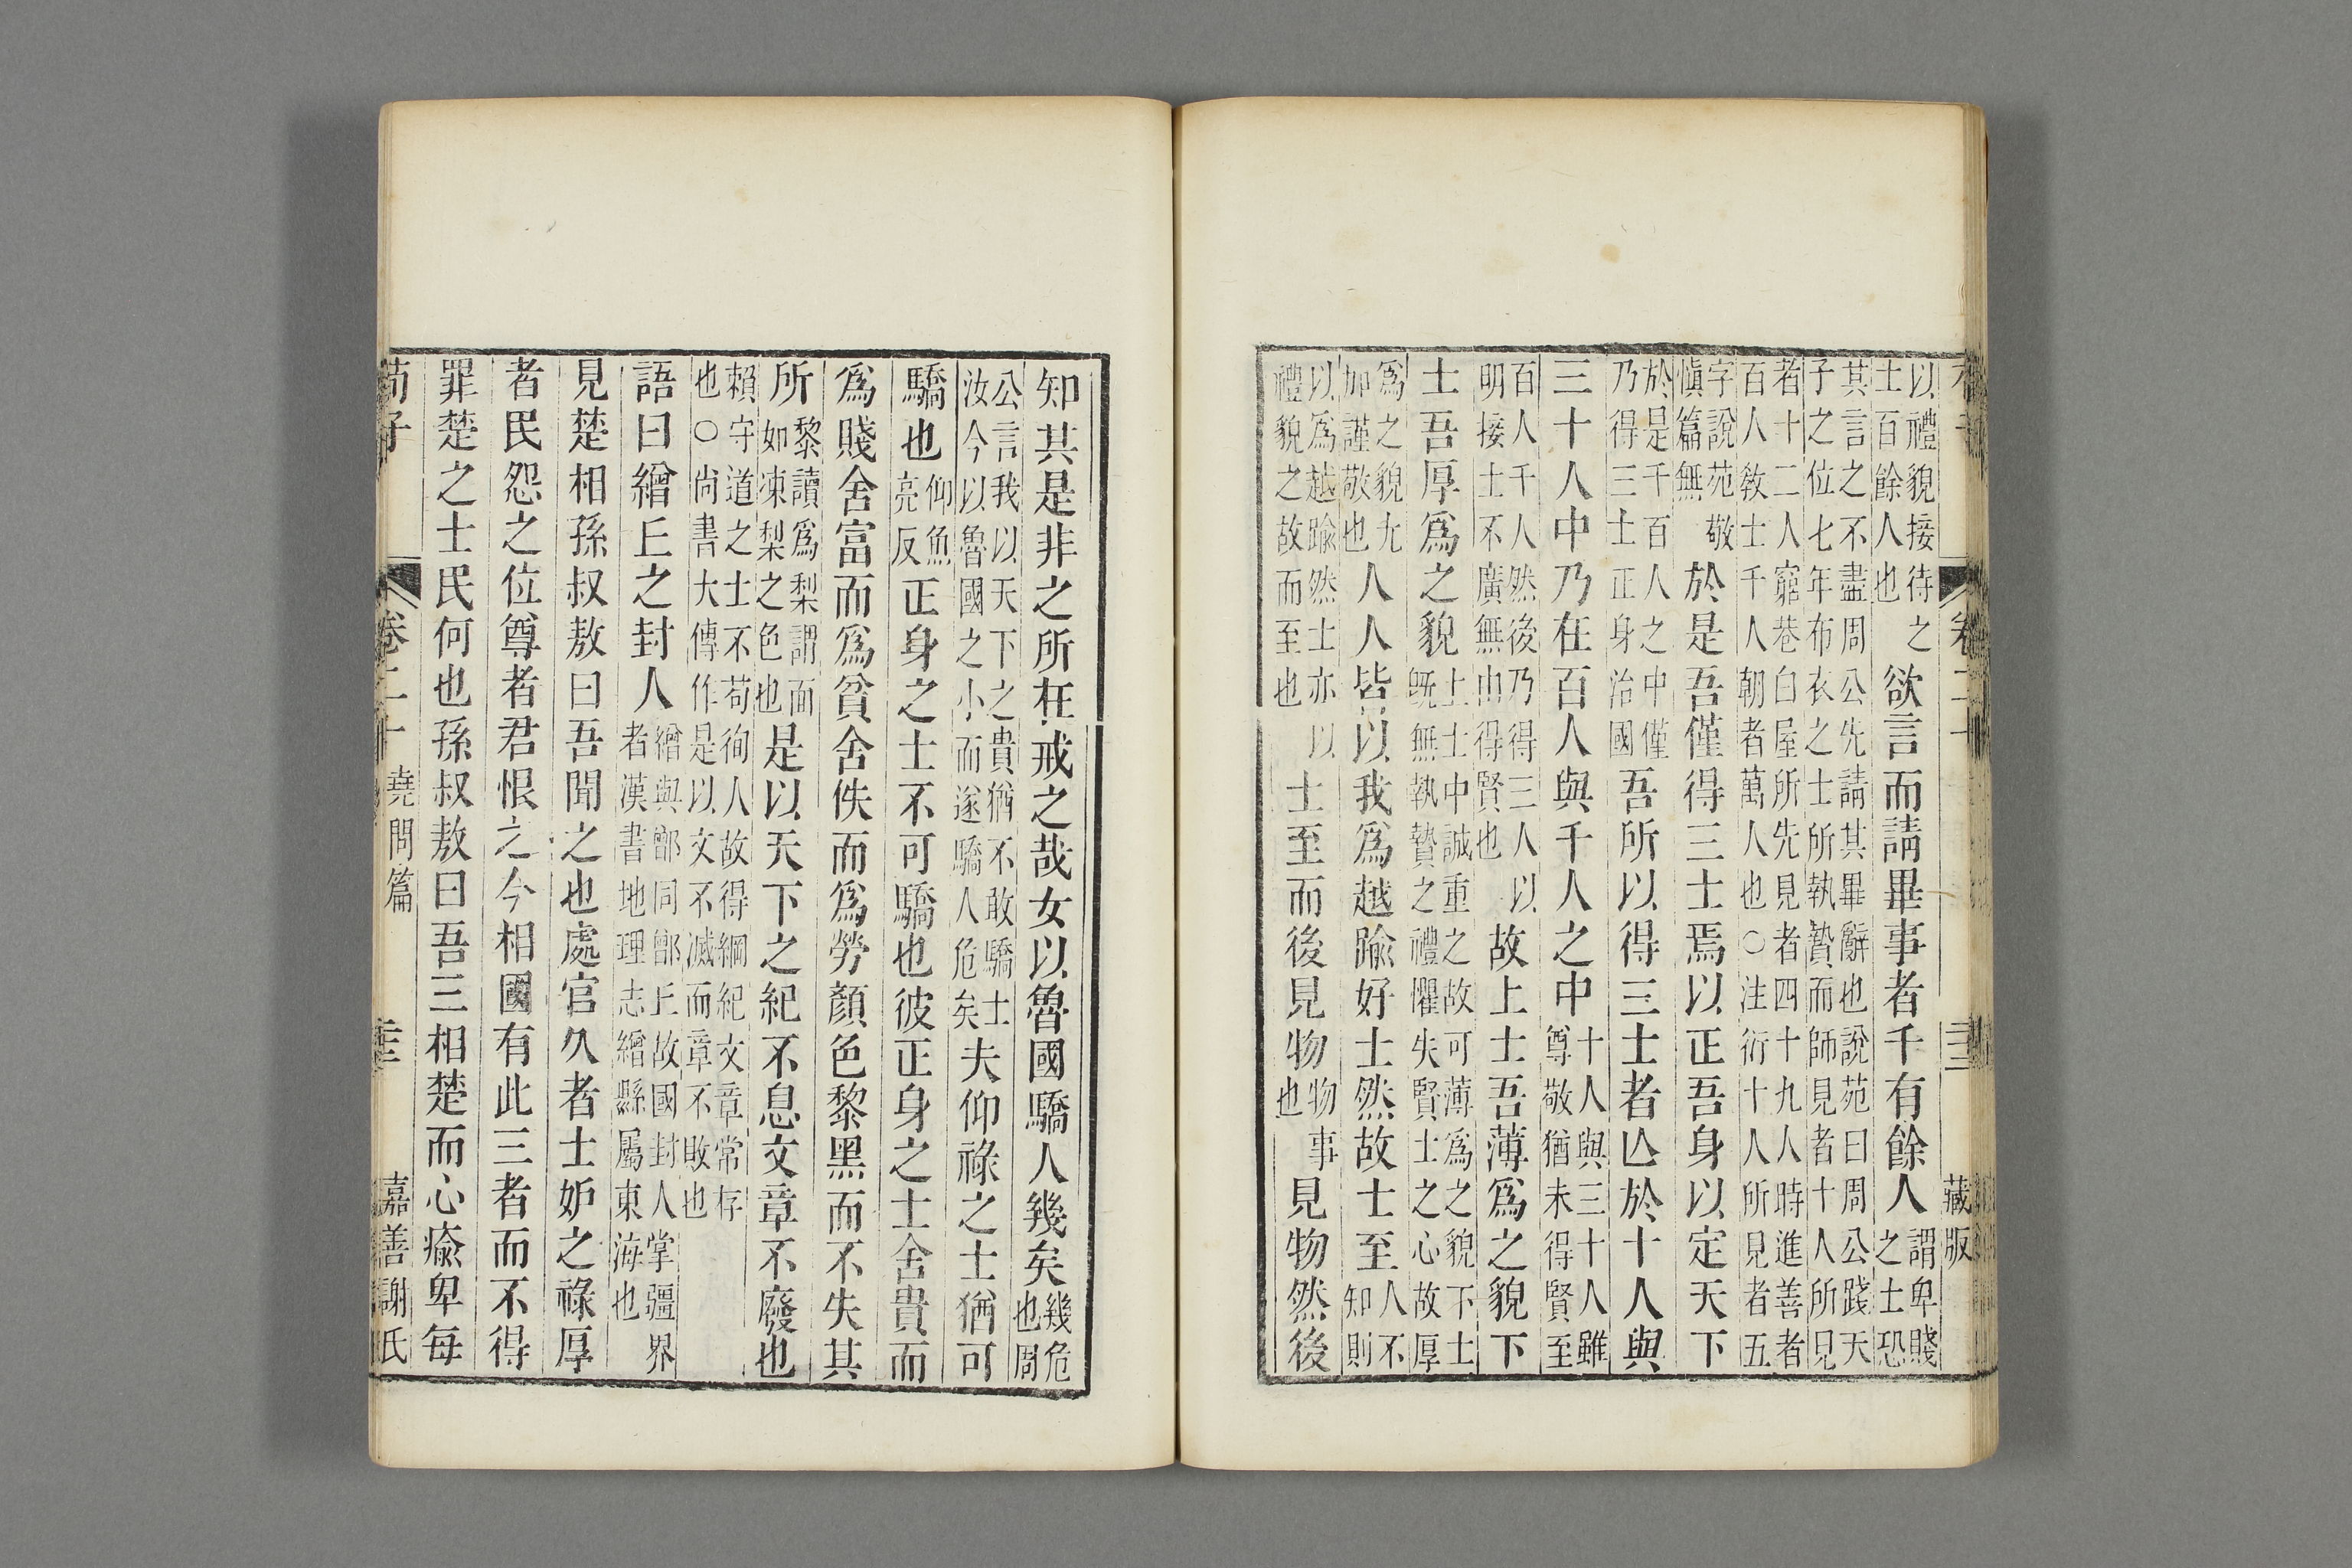 卷二十 藏版
以禮貌接待之士百餘人也欲言而請畢事者千有餘人謂卑賤之士恐
其言之不盡周公先請其畢辭也說苑曰周公踐天子之位七年布衣之士所執贄而師見者十人所見
者十二人窮巷白屋所先見者四十九人時進善者百人敎士千人朝者萬人也○注衍十人所見者五
字說苑敬愼篇無於是吾僅得三士焉以正吾身以定天下
於是千百人之中僅乃得三士正身治國吾所以得三士者亾於十人與
三十人中乃在百人與千人之中十人與三十人雖尊敬猶未得賢至
百人千人然後乃得三人以明接士不廣無由得賢也故上士吾薄爲之貌下
士吾厚爲之貌上士中誠重之故可薄爲之貌下士旣無執贄之禮懼失賢士之心故厚
爲之貌尤加謹敬也人人皆以我爲越踰好士然故士至人不知則
以爲越踰然士亦以禮貌之故而至也士至而後見物物事也見物然後
知其是非之所在戒之哉女以魯國驕人幾矣幾危也周
公言我以天下之貴猶不敢驕士汝今以魯國之小而遂驕人危矣夫仰祿之士猶可
驕也仰魚亮反正身之士不可驕也彼正身之士舍貴而
爲賤舍富而爲貧舍佚而爲勞顏色黎黑而不失其
所黎讀爲梨謂面如凍梨之色也是以天下之紀不息文章不廢也
賴守道之士不苟徇人故得綱紀文章常存也○尚書大傳作是以文不滅而章不敗也
語曰繒丘之封人繒與鄫同鄫丘故國封人掌疆界者漢書地理志繒縣屬東海也
見楚相孫叔敖曰吾聞之也處官久者士妒之祿厚
者民怨之位尊者君恨之今相國有此三者而不得
罪楚之士民何也孫叔敖曰吾三相楚而心瘉卑每
荀子 卷二十 堯問篇 嘉善謝氏